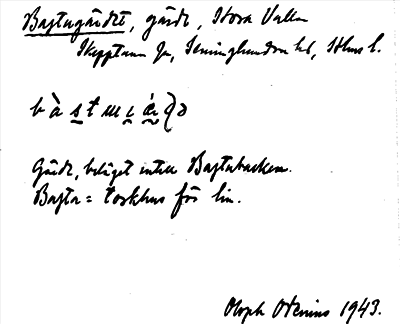 Bastugärdet, gärde, Stora Vallen
Skepptuna sn, Seminghundra hd, Sthms l.
Gärde, beläget intill Bastubacken.
Bastu = torkhus för lin.
Oloph Odenius 1943.